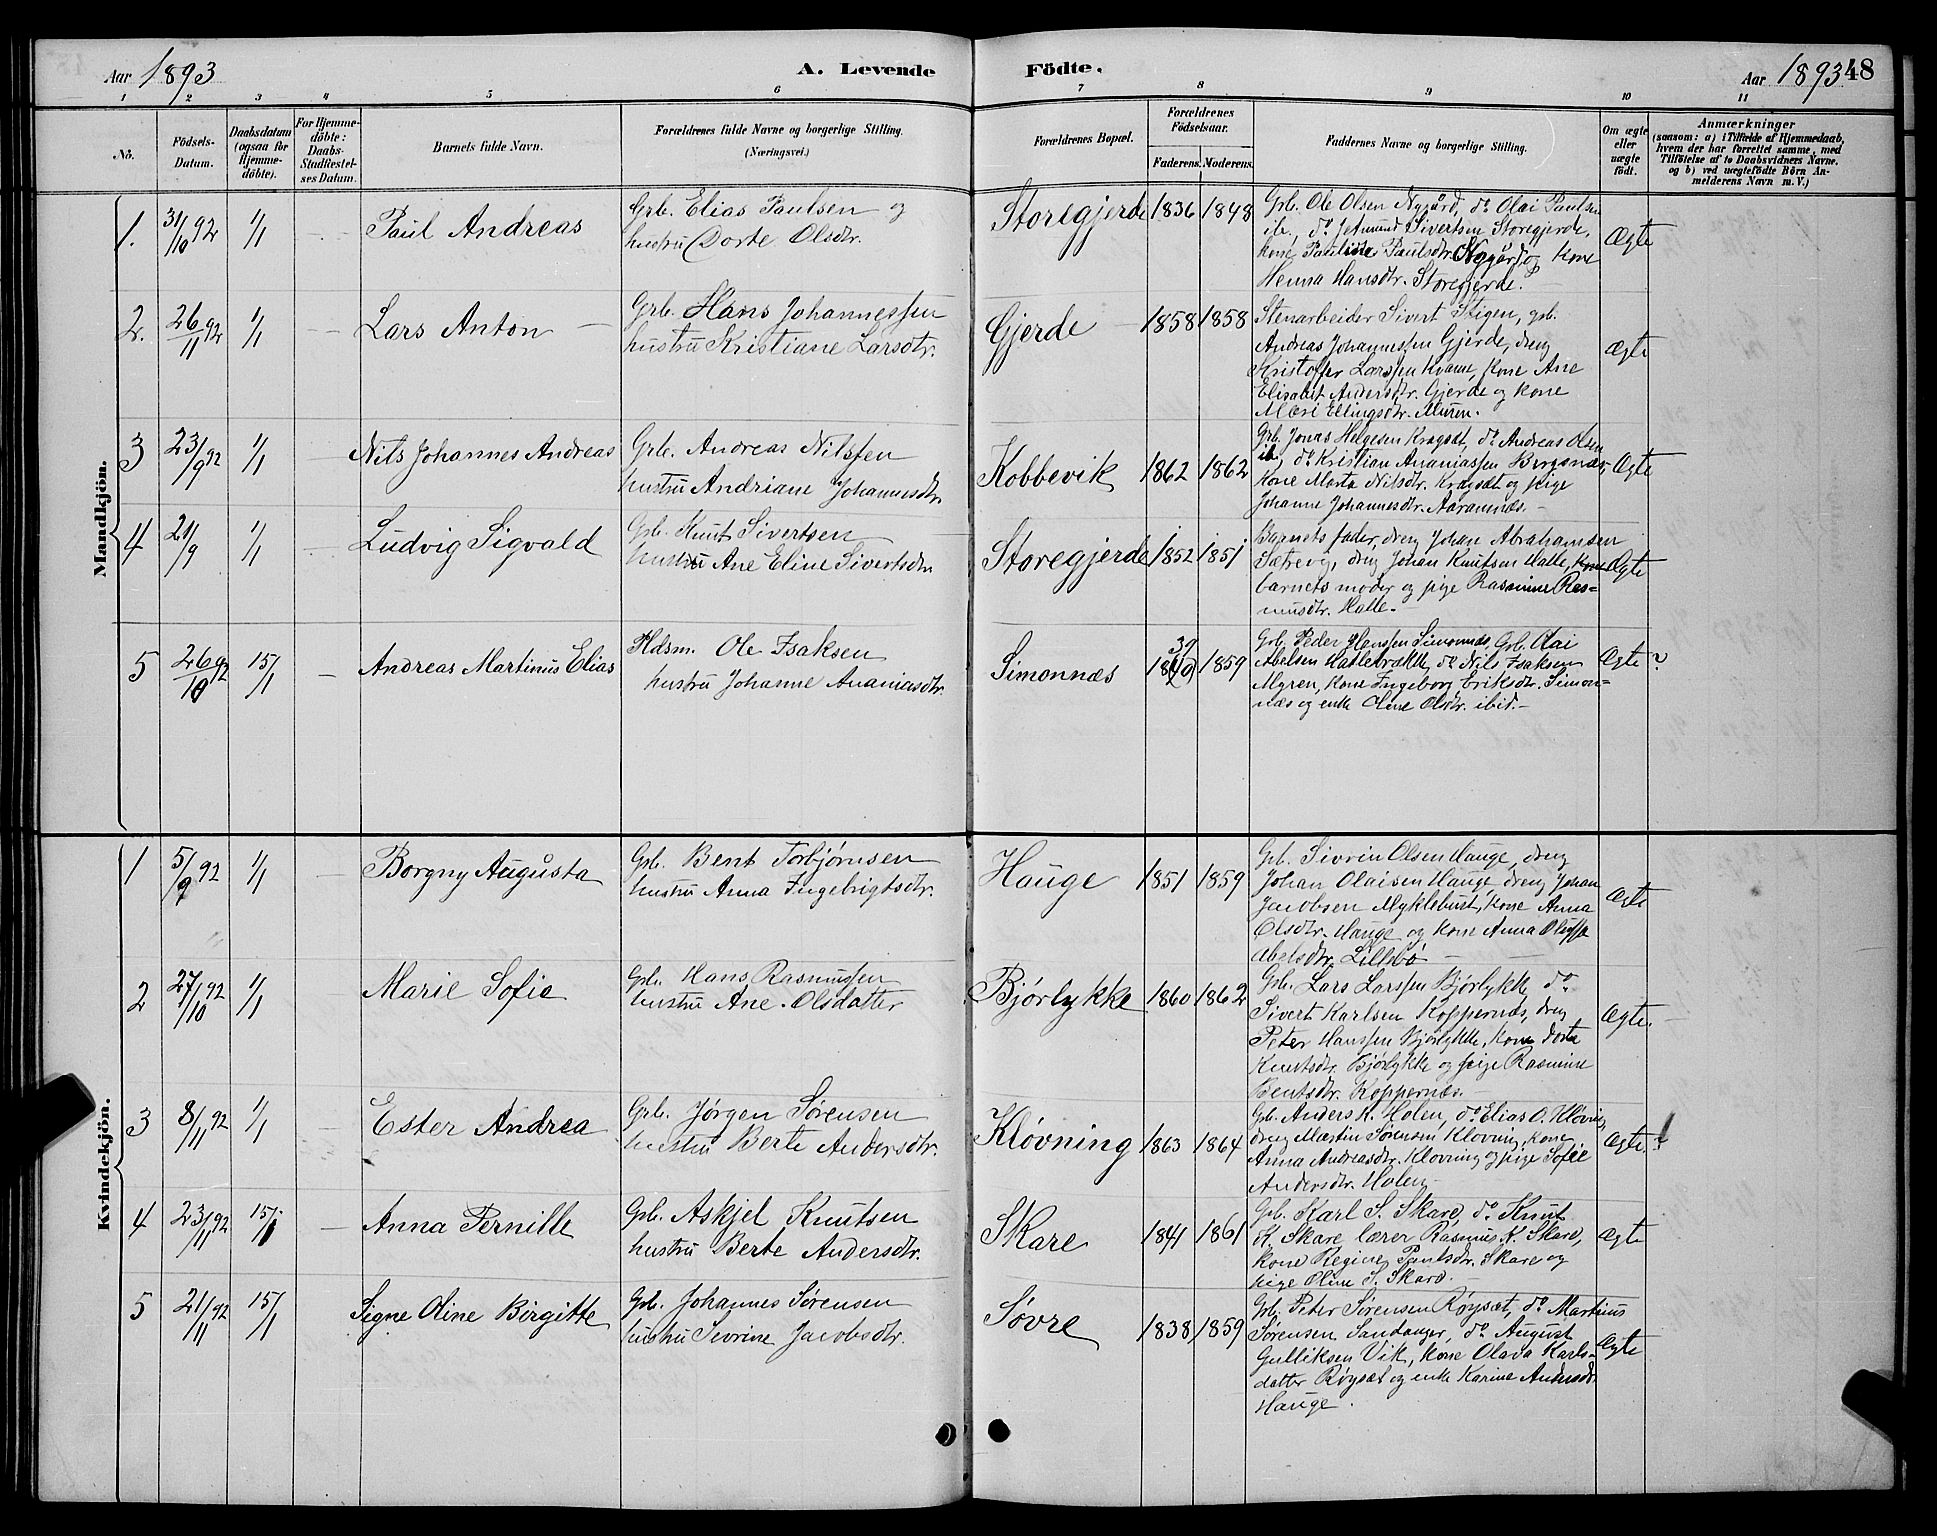 Aar 1893
A. Levende
Födte.
Aar 1893
48
1 2 3 4 5 6 7 8 9 10 11
No.
Födsels-Datum.
Daabsdatum (ogsaa for Hjemme-döbte).
For Hjemme-döbte: Daabs-Stadfæstel-ses Datum.
Barnets fulde Navn.
Forældrenes fulde Navne og borgerlige Stilling.
(Næringsvei.)
Forældrenes Bopæl.
Forældrenes Födselsaar.
Faderens. Moderens.
Faddernes Navne og borgerlige Stilling.
Om ægte eller uægte födt.
Anmærkninger
(saasom: a) i Tilfælde af Hjemmedaab, hvem der har forrettet samme, med Tilföielse af to Daabsvidners Navne, og b) ved uægtefödte Börn An-melderens Navn m. V.)
Mandkjön.
1. 31/10 92 1/1 Paul Andreas
Grb. Elias Paulsen og
hustru Dorte Olsdtr.
Storegjerde 1836 1848
Grb. Ole Olsen Nygård, do Olai Paulsen
ib., do Jetmund Sivertsen Storegjerde,
kone Pauline Paulsdtr. Nygård og kone
Henna Hansdtr. Storegjerde.
Ægte
2. 26/11 92 1/1 Lars Anton
Grb. Hans Johannessen
hustru Kristiane Larsdtr.
Gjerde 1858 1858
Stenarbeider Sivert Stigen, grb.
Andreas Johannessen Gjerde, dreng
Kristoffer Larssen Kvame, kone Ane
Elisabet Andersdtr. Gjerde og kone
Mari Ellingsdtr. Muren.
Ægte
3 23/9 92 1/1 Nils Johannes Andreas
Grb. Andreas Nilssen
hustru Andriane Johannesdtr.
Kobbevik 1862 1862
Grb. Jonas Helgesen Kragsæt, do Andreas Olsen
ib, do Kristian Ananiassen Bergsnæs,
kone Marta Nilsdtr. Kragsæt og pige
Johanne Johannesdtr. Aaramnæs.
Ægte
4 21/9 1/1 Ludvig Sigvald
Grb. Knut Sivertsen
hustru Ane Eline Sivertsdtr.
Storegjerde 1852 1851
Barnets fader, dreng Johan Abrahamsen
Sætrevig, dreng Johan Knutsen Hatle, kone
barnets moder og pige Rasmine Ras-
musdtr. Hatle.
Ægte
5 26/10 92 15/1 Andreas Martinus Elias
Hdsm. Ole Isaksen
hustru Johanne Ananiasdtr.
Simonnæs 39 1859
Grb. Peder Hanssen Simonnæs, Grb. Olai
Abelsen Hatlebrække, do Nils Isaksen
Myren, kone Ingeborg Eriksdtr. Simon-
næs og enke Oline Olsdtr. ibid.
Ægte ?
Kvindekjön.
1 5/9 92 1/1 Borgny Augusta
Grb. Bent Torbjørnsen
hustru Anna Ingebrigtsdtr.
Hauge 1851 1859
Grb. Sivrin Olsen Hauge, dreng
Johan Olaisen Hauge, dreng Johan
Jacobsen Myklebust, kone Anna
Olsdtr. Hauge og kone Anna
Abelsdtr. Lillebø
Ægte
2 27/10 92 1/1 Marie Sofie
Grb. Hans Rasmussen
hustru Ane Olsdatter
Bjørlykke 1860 1862
Grb. Lars Larssen Bjørlykke do
Sivert Karlsen Koppernæs, dreng
Peter Hanssen Bjørlykke, kone Dorte
Knutsdtr. Bjørlykke og pige Rasmine
Bentsdtr. Koppernæs.
Ægte.
3 8/11 92 1/1 Ester Andrea
Grb. Jørgen Sørensen
hustru Berte Andersdtr.
Kløvning 1863 1864
Grb. Anders K. Holen, do Elias O. Kløvning,
dreng Martin Sørensen Kløvning, kone
Anna Andreasdtr. Kløvning og pige Sofie
Andersdtr. Holen
Ægte. ?
4 23/11 92 15/1 Anna Pernille
Grb. Askjel Knutsen
hustru Berte Andersdtr.
Skare 1841 1861
Grb. Karl S. Skare, do Knut
K. Skare lærer Rasmus K. Skare,
kone Regine Paulsdtr. Skare og
pige Oline S. Skare.
Ægte
5 21/11 92 15/1 Signe Oline Birgitte
Grb. Johannes Sørensen
hustru Sevrine Jacobsdtr.
Søvre 1838 1859
Grb. Peter Sørensen Røysæt, do Martinus
Sørensen Sandanger, do August
Gulliksen Vik, kone Olava Karls-
datter Røysæt og enke Karine Andersdtr.
Hauge.
Ægte